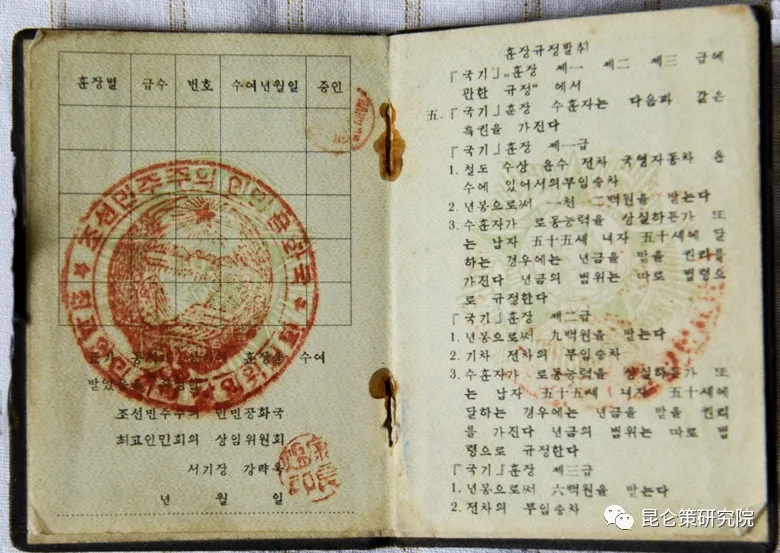 훈장별 급수 번호 수여년월일 증인
조선민주주의 인민공화국
훈장을 수여
조선민주주의 인민공화국
최고인민회의 상임위원회
서기장 강량욱
년 월 일
훈장규정발취
「국기」훈장 제一 제二 제三 급에
관한 규정" 에서
五. 「국기」훈장 수훈자는 다음과 같은
특권을 가진다
「국기」훈장 제一급
1. 철도 수상 운수 전차 국영자동차 운
수에 있어서의무임승차
2. 년봉으로써 一천 二백원을 받는다
3. 수훈자가 로동능력을 상실하든가 또
는 남자 五十五세 녀자 五十세에 달
하는 경우에는 년금을 받을 권리를
가진다 년금의 범위는 따로 법령으
로 규정한다
「국기」훈장 제二급
1. 년봉으로써 九백원을 받는다
2. 기차 전차의 무임승차
3. 수훈자가 로동능력을 상실하든가 또
는 남자 五十五세 녀자 五十세에
달하는 경우에는 년금을 받을 권리
를 가진다 년금의 범위는 따로 법
령으로 규정한다
「국기」훈장 제三급
1. 년봉으로써 六백원을 받는다
2. 전차의 무임승차
昆仑策研究院